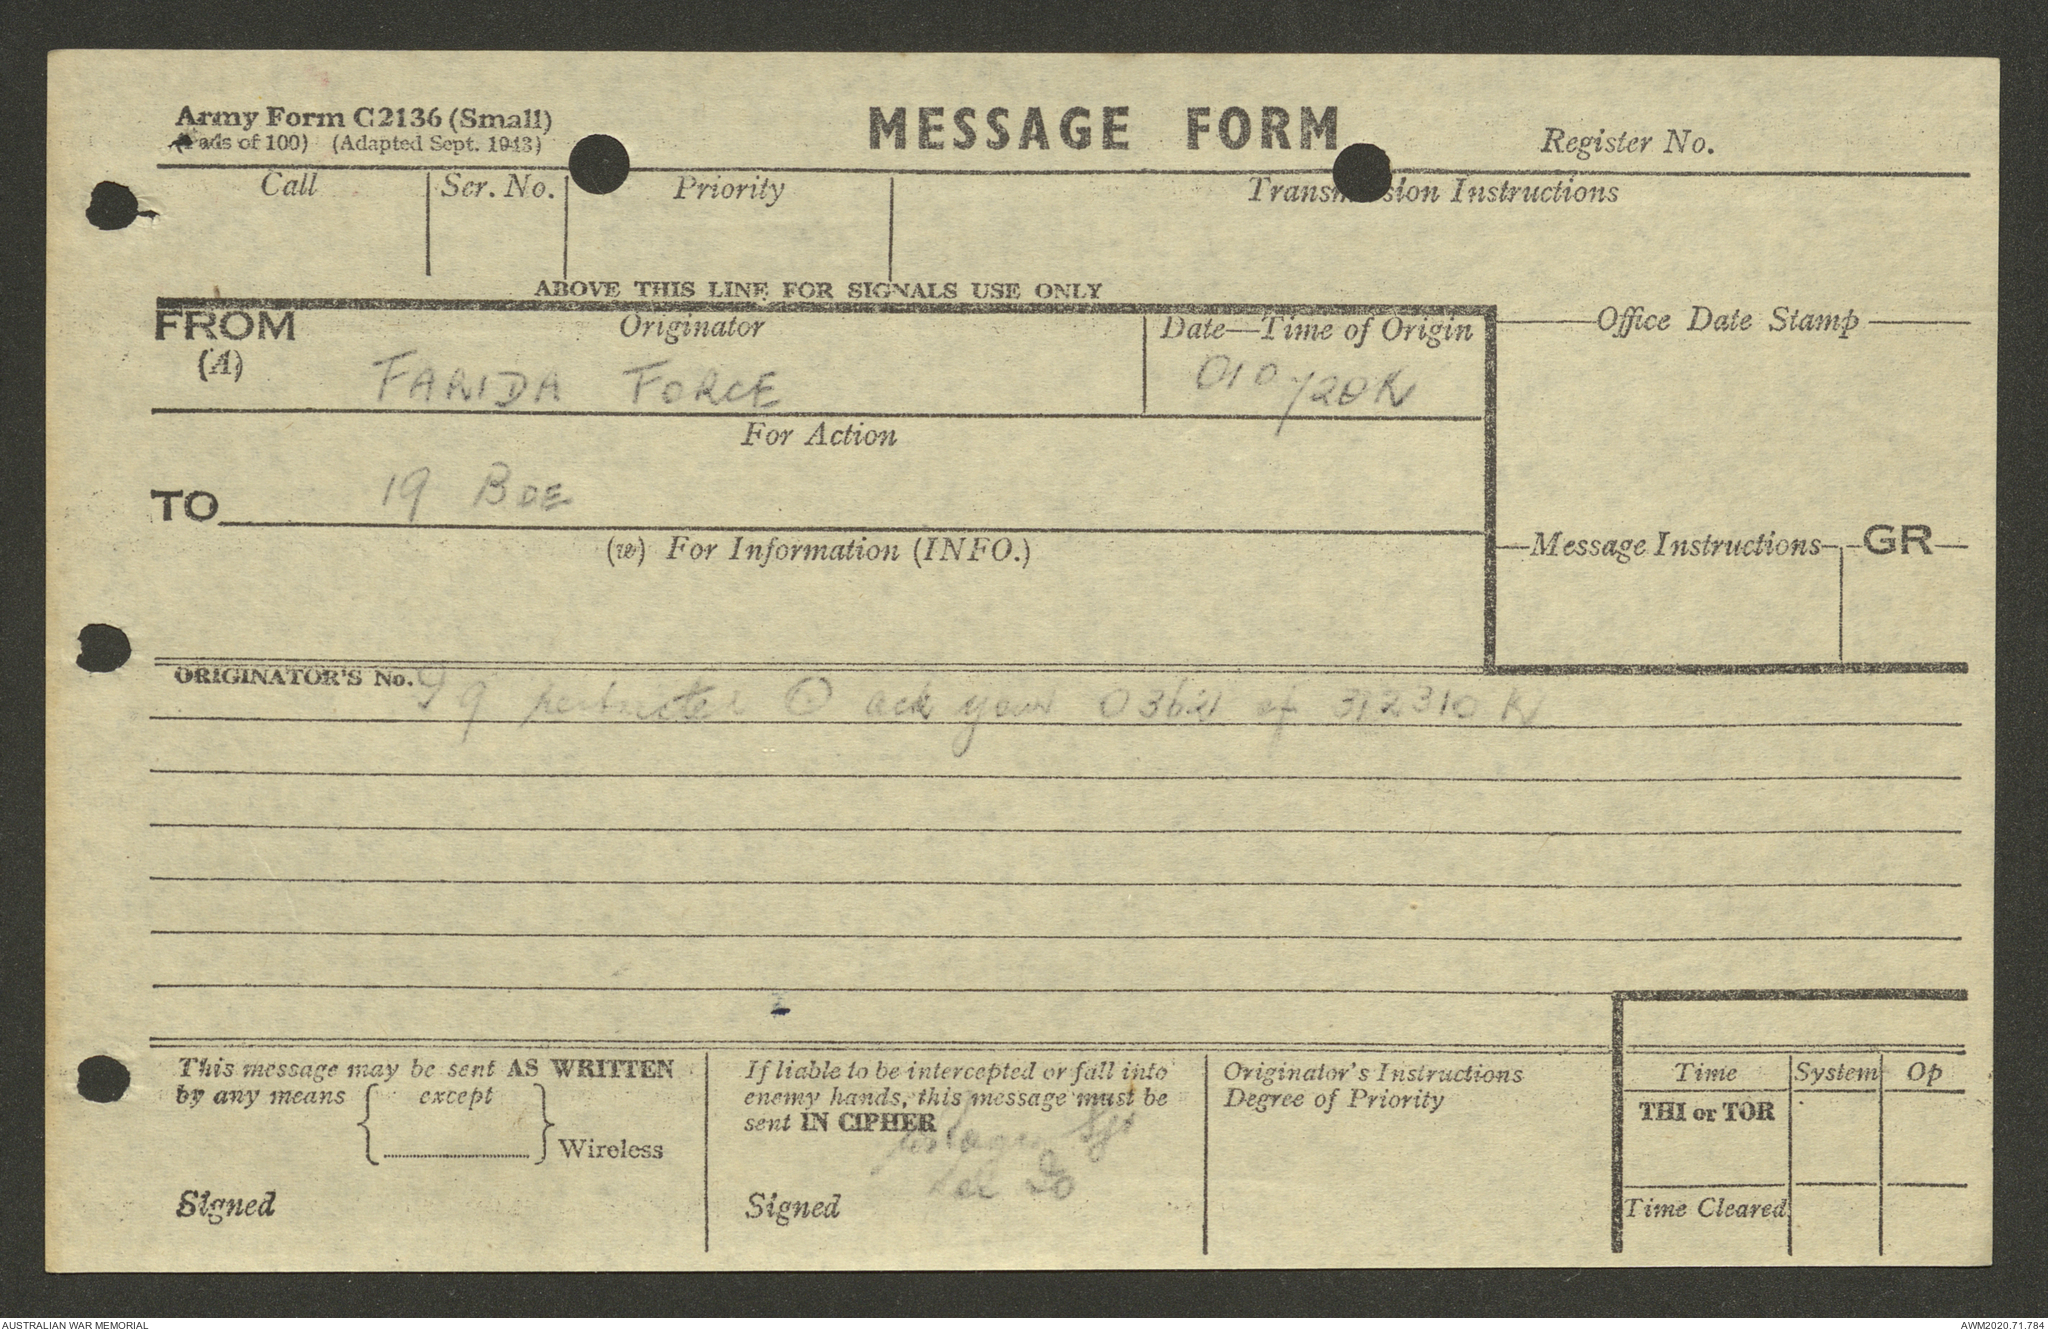 Army Form C2136 (Small)
MESSAGE FORM
Register No.
(Pads of 100) (Adapted Sept. 1943)
Call
Ser. No.
Priority
Transmission Instructions
ABOVE THIS LINE FOR SIGNALS USE ONLY
FROM
(A)
Originator
Date—Time of Origin
Office Date Stamp
FARIDA FORCE
TO
For Action
19 BDE
(w) For Information (INFO.)
Message Instructions
GR
ORIGINATOR'S No.
restricted ack your of 312310 K
This message may be sent AS WRITTEN
by any means
except
Wireless
Signed
If liable to be intercepted or fall into
enemy hands, this message must be
sent IN CIPHER
Signed
Originator's Instructions
Degree of Priority
Time
System
Op
THI or TOR
Time Cleared
AUSTRALIAN WAR MEMORIAL
AWM2020.71.784